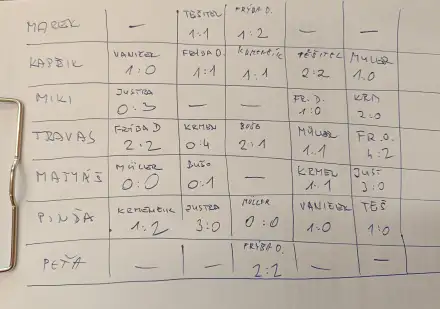 MAREK — TĚŠITEL 1:1 FRÝDA D. 1:2 — —
KAPŠIK VANICEK 1:0 FRÝDA D. 1:1 KRMENČÍK 1:1 TĚŠITEL 2:2 MÜLLER 1:0
MIKI JUSTRA 0:3 — — FR. D. 1:0 KRM 2:0
TRAVAS FRÝDA D 2:2 KRMEN 0:4 DUŠO 2:1 MÜLLER 1:1 FR. D. 4:2
MATYÁŠ MÜLLER 0:0 DUŠO 0:1 — KRMEN 1:1 JUST 3:0
PINĎA KRMENČÍK 1:2 JUSTRA 3:0 MÜLLER 0:0 VANICEK 1:0 TĚŠ 1:0
PEŤA — — FRÝDA D. 2:2 — —